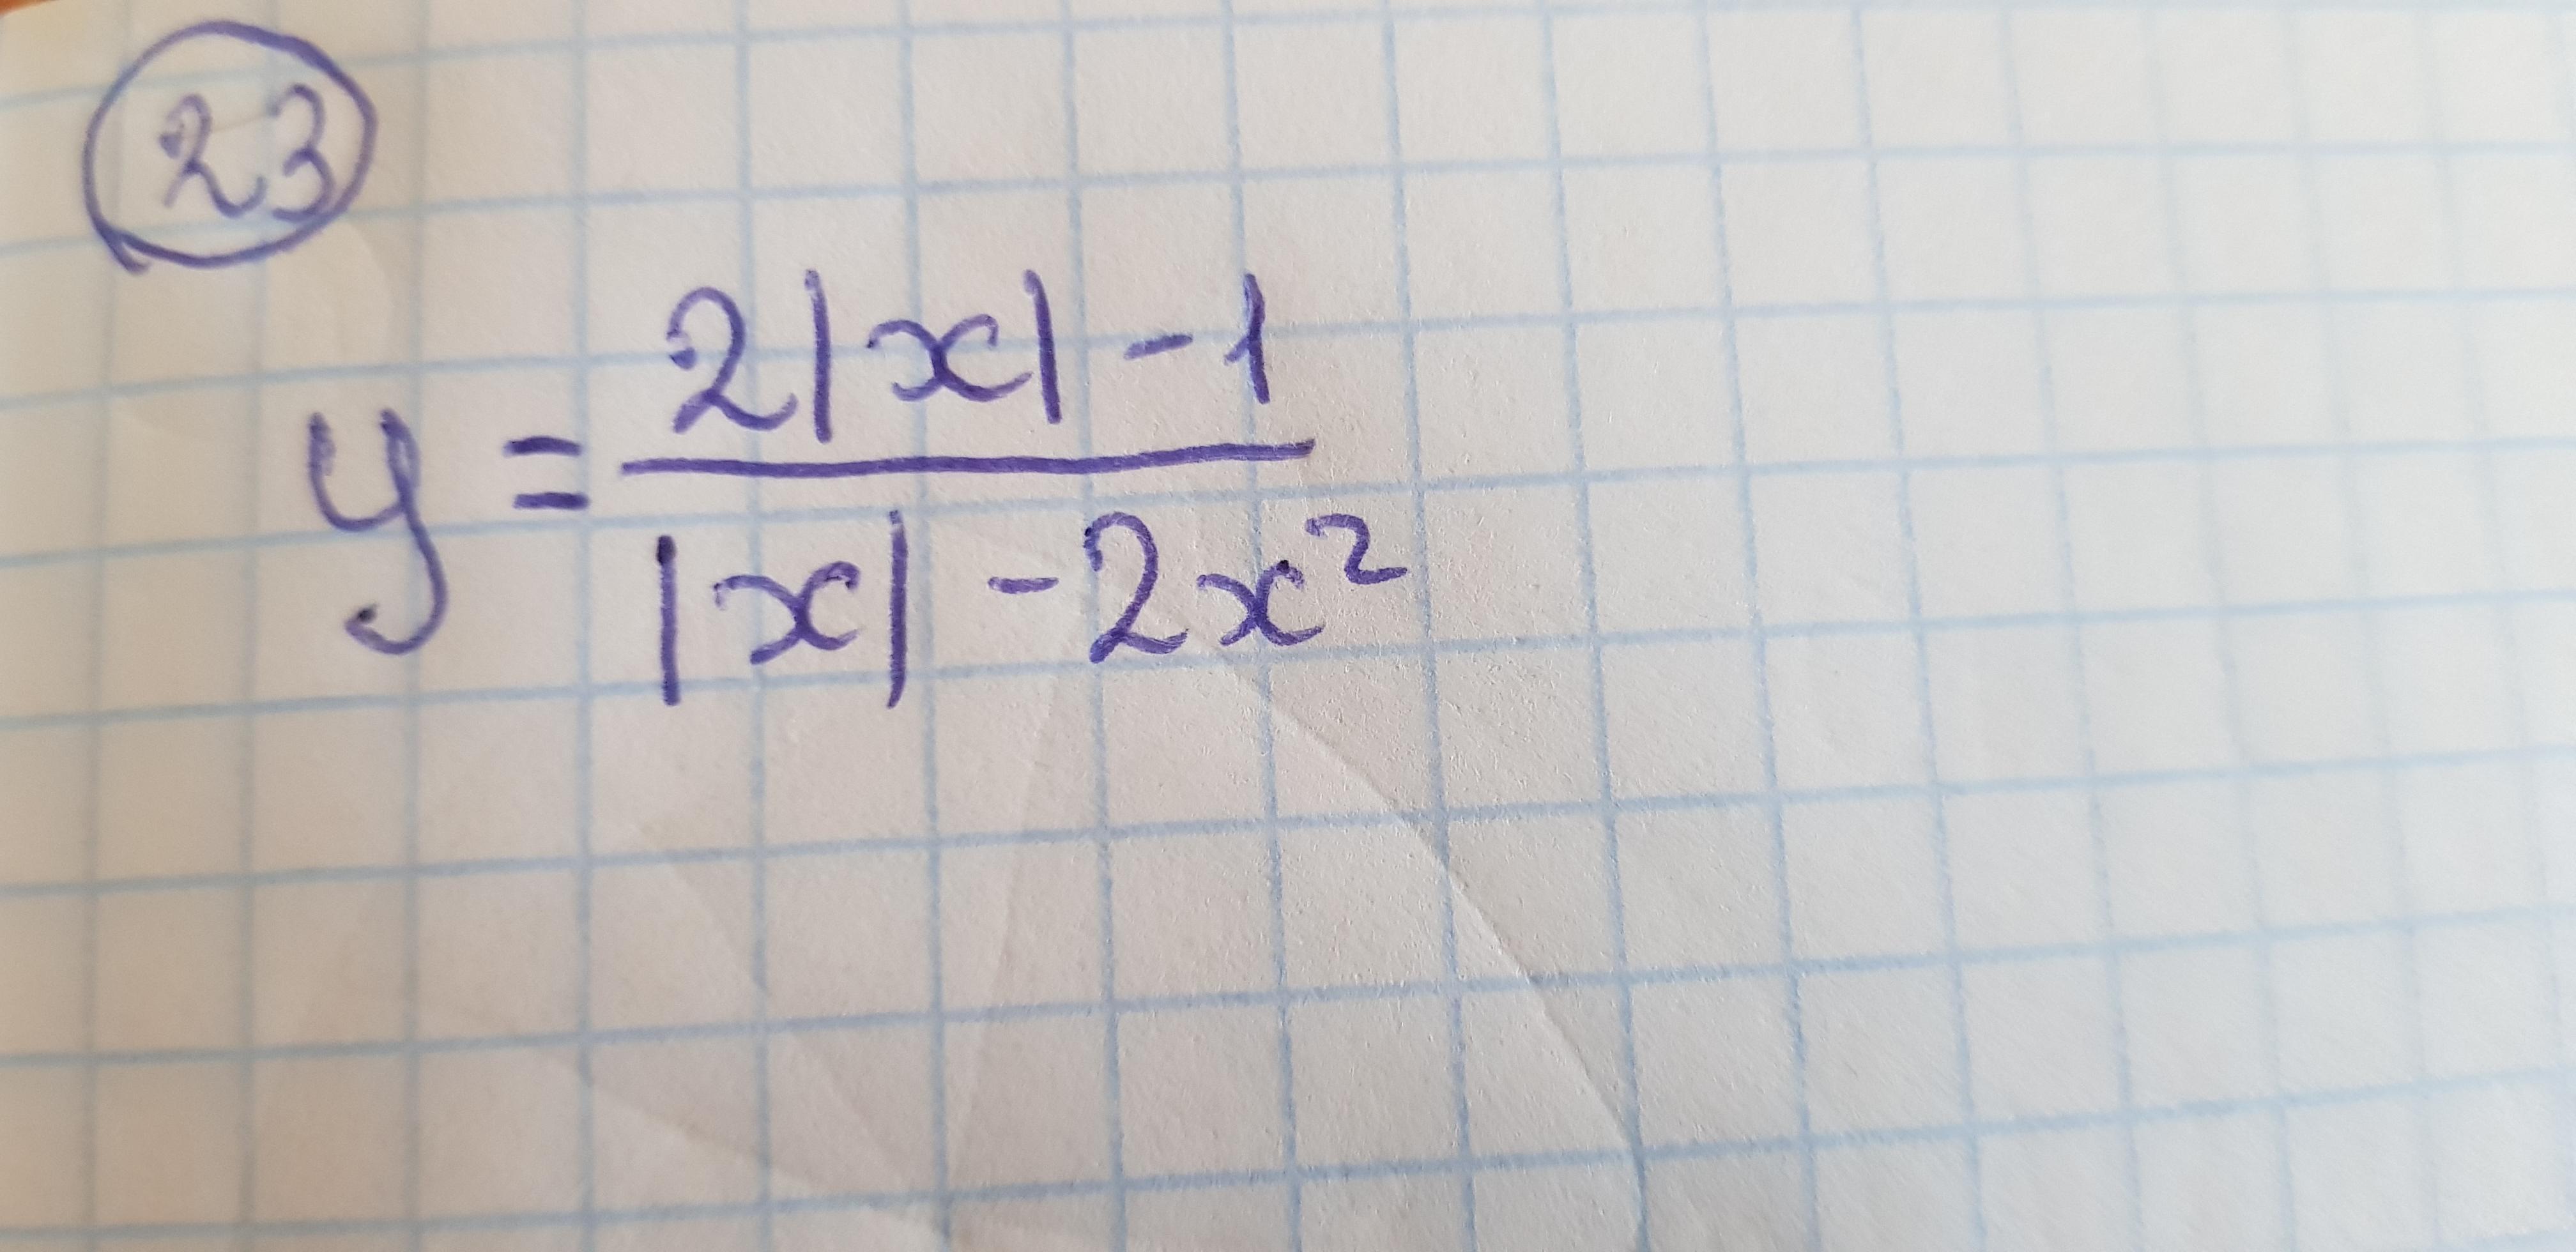 23
y = 2|x| - 1
|x| - 2x²